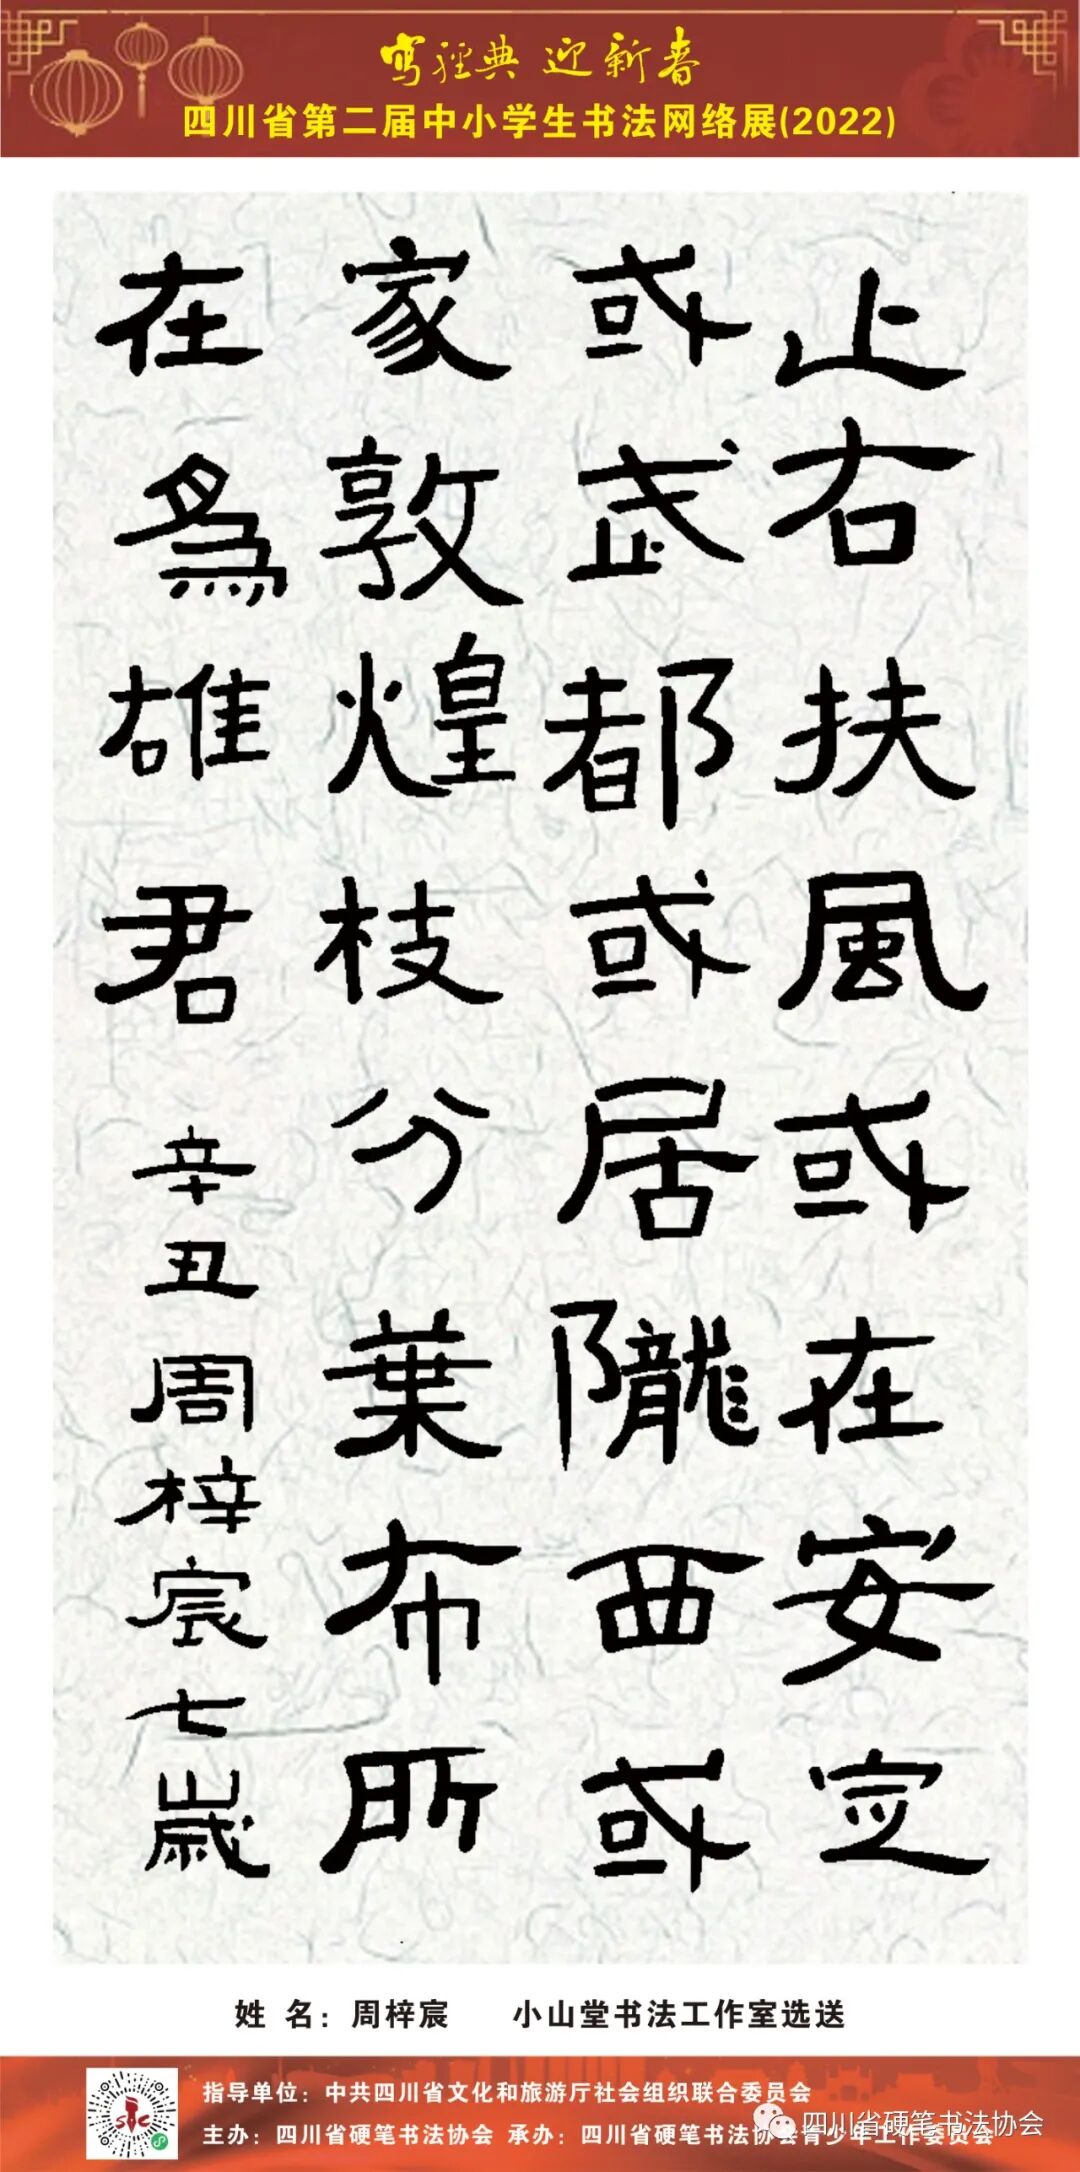 写经典 迎新春
四川省第二届中小学生书法网络展(2022)
止右扶風或在安定
或武都或居隴西或
家敦煌枝分葉布所
在為雄君
辛丑周梓宸七歲
姓 名：周梓宸 小山堂书法工作室选送
指导单位：中共四川省文化和旅游厅社会组织联合委员会
主办：四川省硬笔书法协会 承办：四川省硬笔书法协会青少年工作委员会
四川省硬笔书法协会